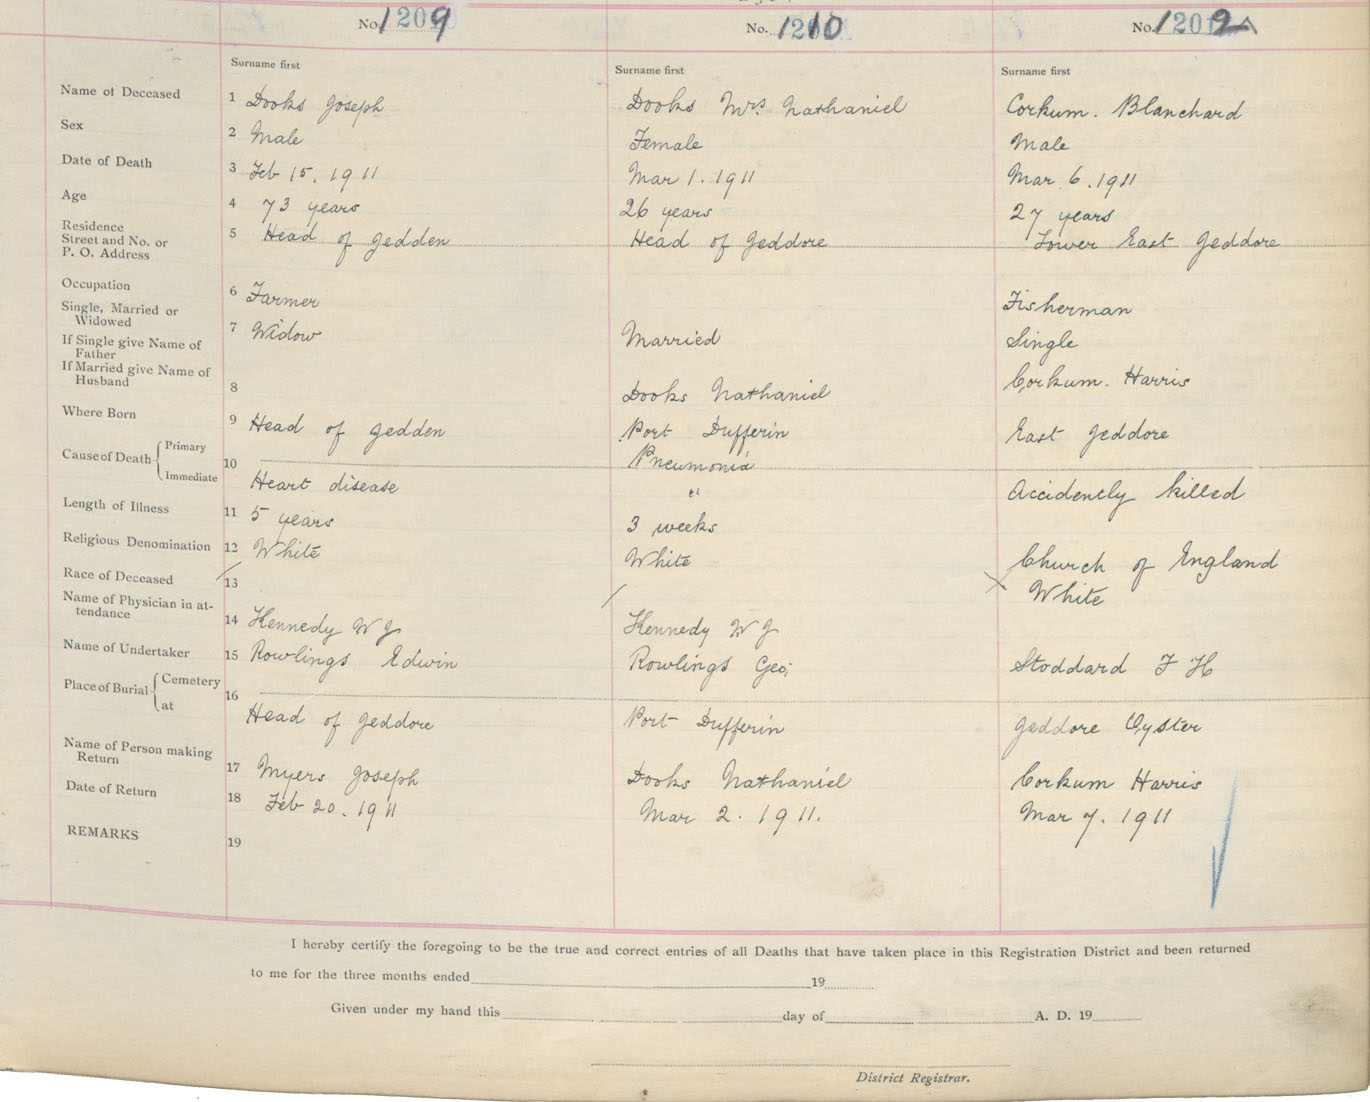 No. 1209 No. 1210 No. 1201 2A
Surname first Surname first Surname first
Name of Deceased 1 Dooks Joseph Dooks Mrs Nathaniel Corkum. Blanchard
Sex 2 Male Female Male
Date of Death 3 Feb 15. 1911 Mar 1. 1911 Mar 6. 1911
Age 4 73 years 26 years 27 years
Residence
Street and No. or 5 Head of Jedden Head of Jeddore Lower East Jeddore
P. O. Address
Occupation 6 Farmer Fisherman
Single, Married or
Widowed 7 Widow Married Single
If Single give Name of
Father
If Married give Name of
Husband 8 Dooks Nathaniel Corkum. Harris
Where Born 9 Head of Jedden Port Dufferin East Jeddore
Cause of Death Primary Pneumonia
10
Immediate Heart disease " Accidently killed
Length of Illness 11 5 years 3 weeks
Religious Denomination 12 White White Church of England
Race of Deceased 13 White
Name of Physician in at-
tendance 14 Kennedy W J Kennedy W J
Name of Undertaker 15 Rowlings Edwin Rowlings Geo; Stoddard F H
Place of Burial Cemetery
16
at Head of Jeddore Port Dufferin Jeddore Oyster
Name of Person making
Return 17 Myers Joseph Dooks Nathaniel Corkum Harris
Date of Return 18 Feb 20. 1911 Mar 2. 1911. Mar 7. 1911
REMARKS 19
I hereby certify the foregoing to be the true and correct entries of all Deaths that have taken place in this Registration District and been returned
to me for the three months ended 19
Given under my hand this day of A. D. 19
District Registrar.